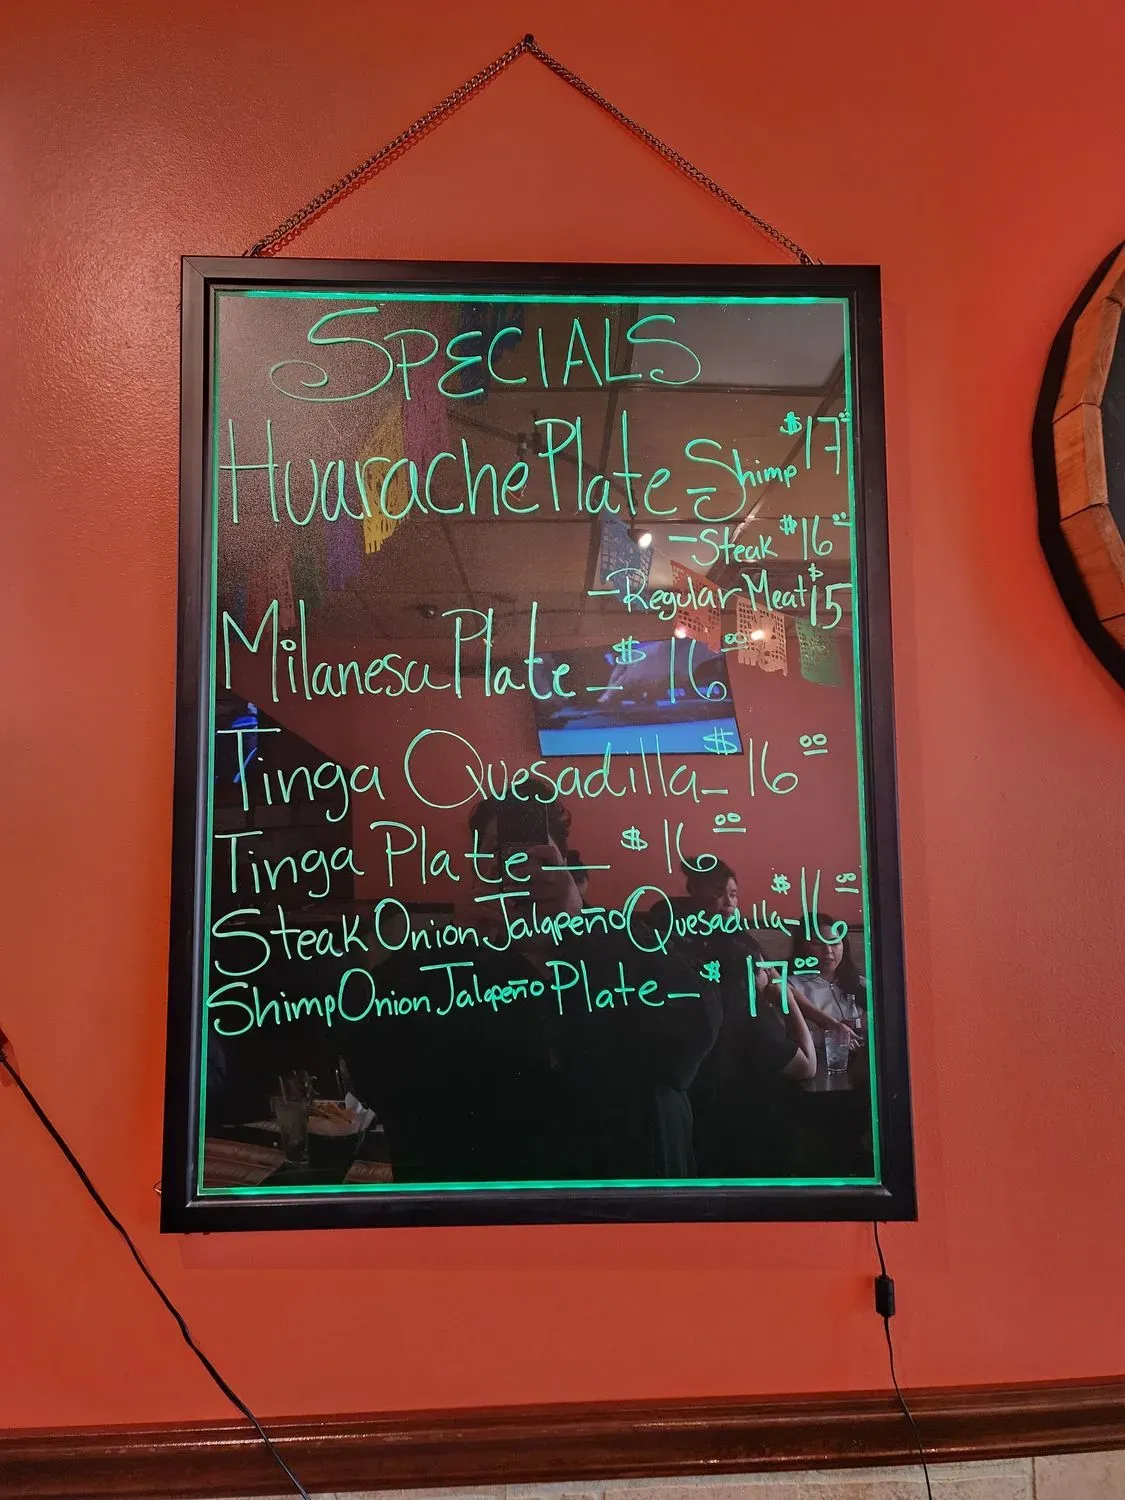 SPECIALS
Huarache Plate - Shimp $17.00
- Steak $16.00
- Regular Meat $15
Milanesa Plate - $16.00
Tinga Quesadilla - $16.00
Tinga Plate - $16.00
Steak Onion Jalapeño Quesadilla - $16.00
Shimp Onion Jalapeño Plate - $17.00